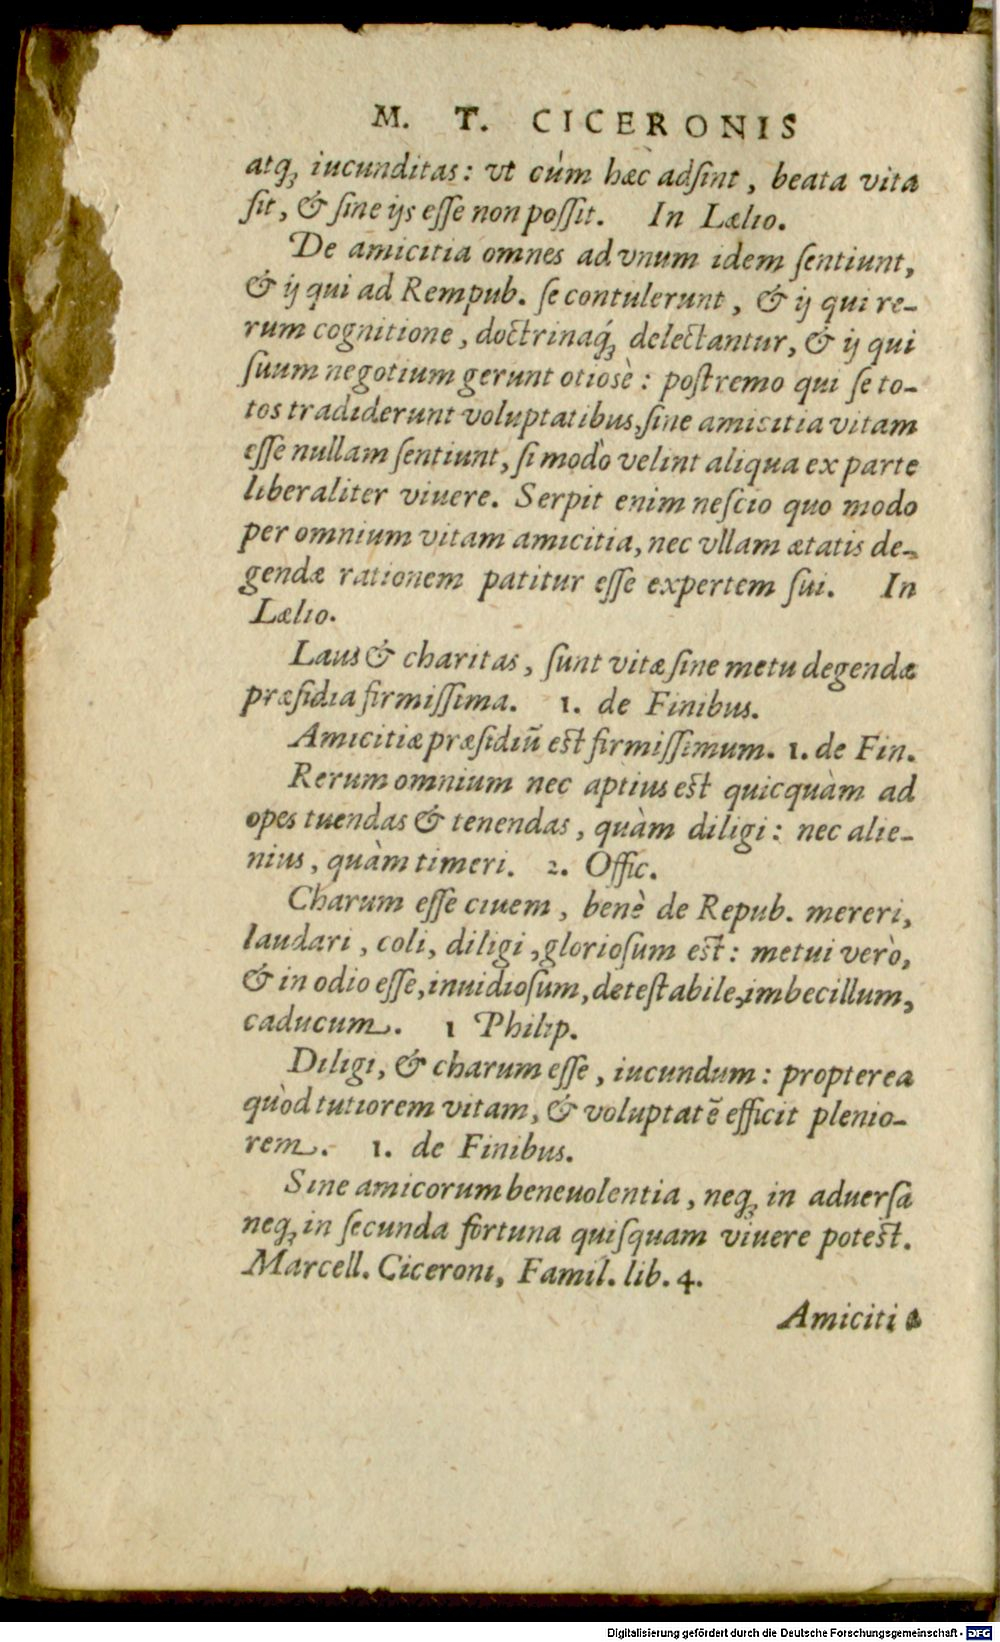 M. T. CICERONIS
atq; iucunditas: vt cúm hæc adſint, beata vita
ſit, & ſine ijs eſſe non poſſit. In Lælio.
De amicitia omnes ad vnum idem ſentiunt,
& ij qui ad Rempub. ſe contulerunt, & ij qui re-
rum cognitione, doctrinaq́; delectantur, & ij qui
ſuum negotium gerunt otiosè: poſtremo qui ſe to-
tos tradiderunt voluptatibus, ſine amicitia vitam
eſſe nullam ſentiunt, ſi modò velint aliqua ex parte
liberaliter viuere. Serpit enim neſcio quo modo
per omnium vitam amicitia, nec vllam ætatis de-
gendæ rationem patitur eſſe expertem ſui. In
Lælio.
Laus & charitas, ſunt vitæ ſine metu degendæ
præſidia firmiſſima. 1. de Finibus.
Amicitiæ præſidiũ eſt firmiſſimum. 1. de Fin.
Rerum omnium nec aptius eſt quicquàm ad
opes tuendas & tenendas, quàm diligi: nec alie-
nius, quàm timeri. 2. Offic.
Charum eſſe ciuem, benè de Repub. mereri,
laudari, coli, diligi, glorioſum eſt: metui verò,
& in odio eſſe, inuidioſum, deteſtabile, imbecillum,
caducum. 1 Philip.
Diligi, & charum eſſe, iucundum: propterea
quòd tutiorem vitam, & voluptatẽ efficit plenio-
rem. 1. de Finibus.
Sine amicorum beneuolentia, neq; in aduerſa
neq; in ſecunda fortuna quiſquam viuere poteſt.
Marcell. Ciceroni, Famil. lib. 4.
Amicitia
Digitalisierung gefördert durch die Deutsche Forschungsgemeinschaft - DFG